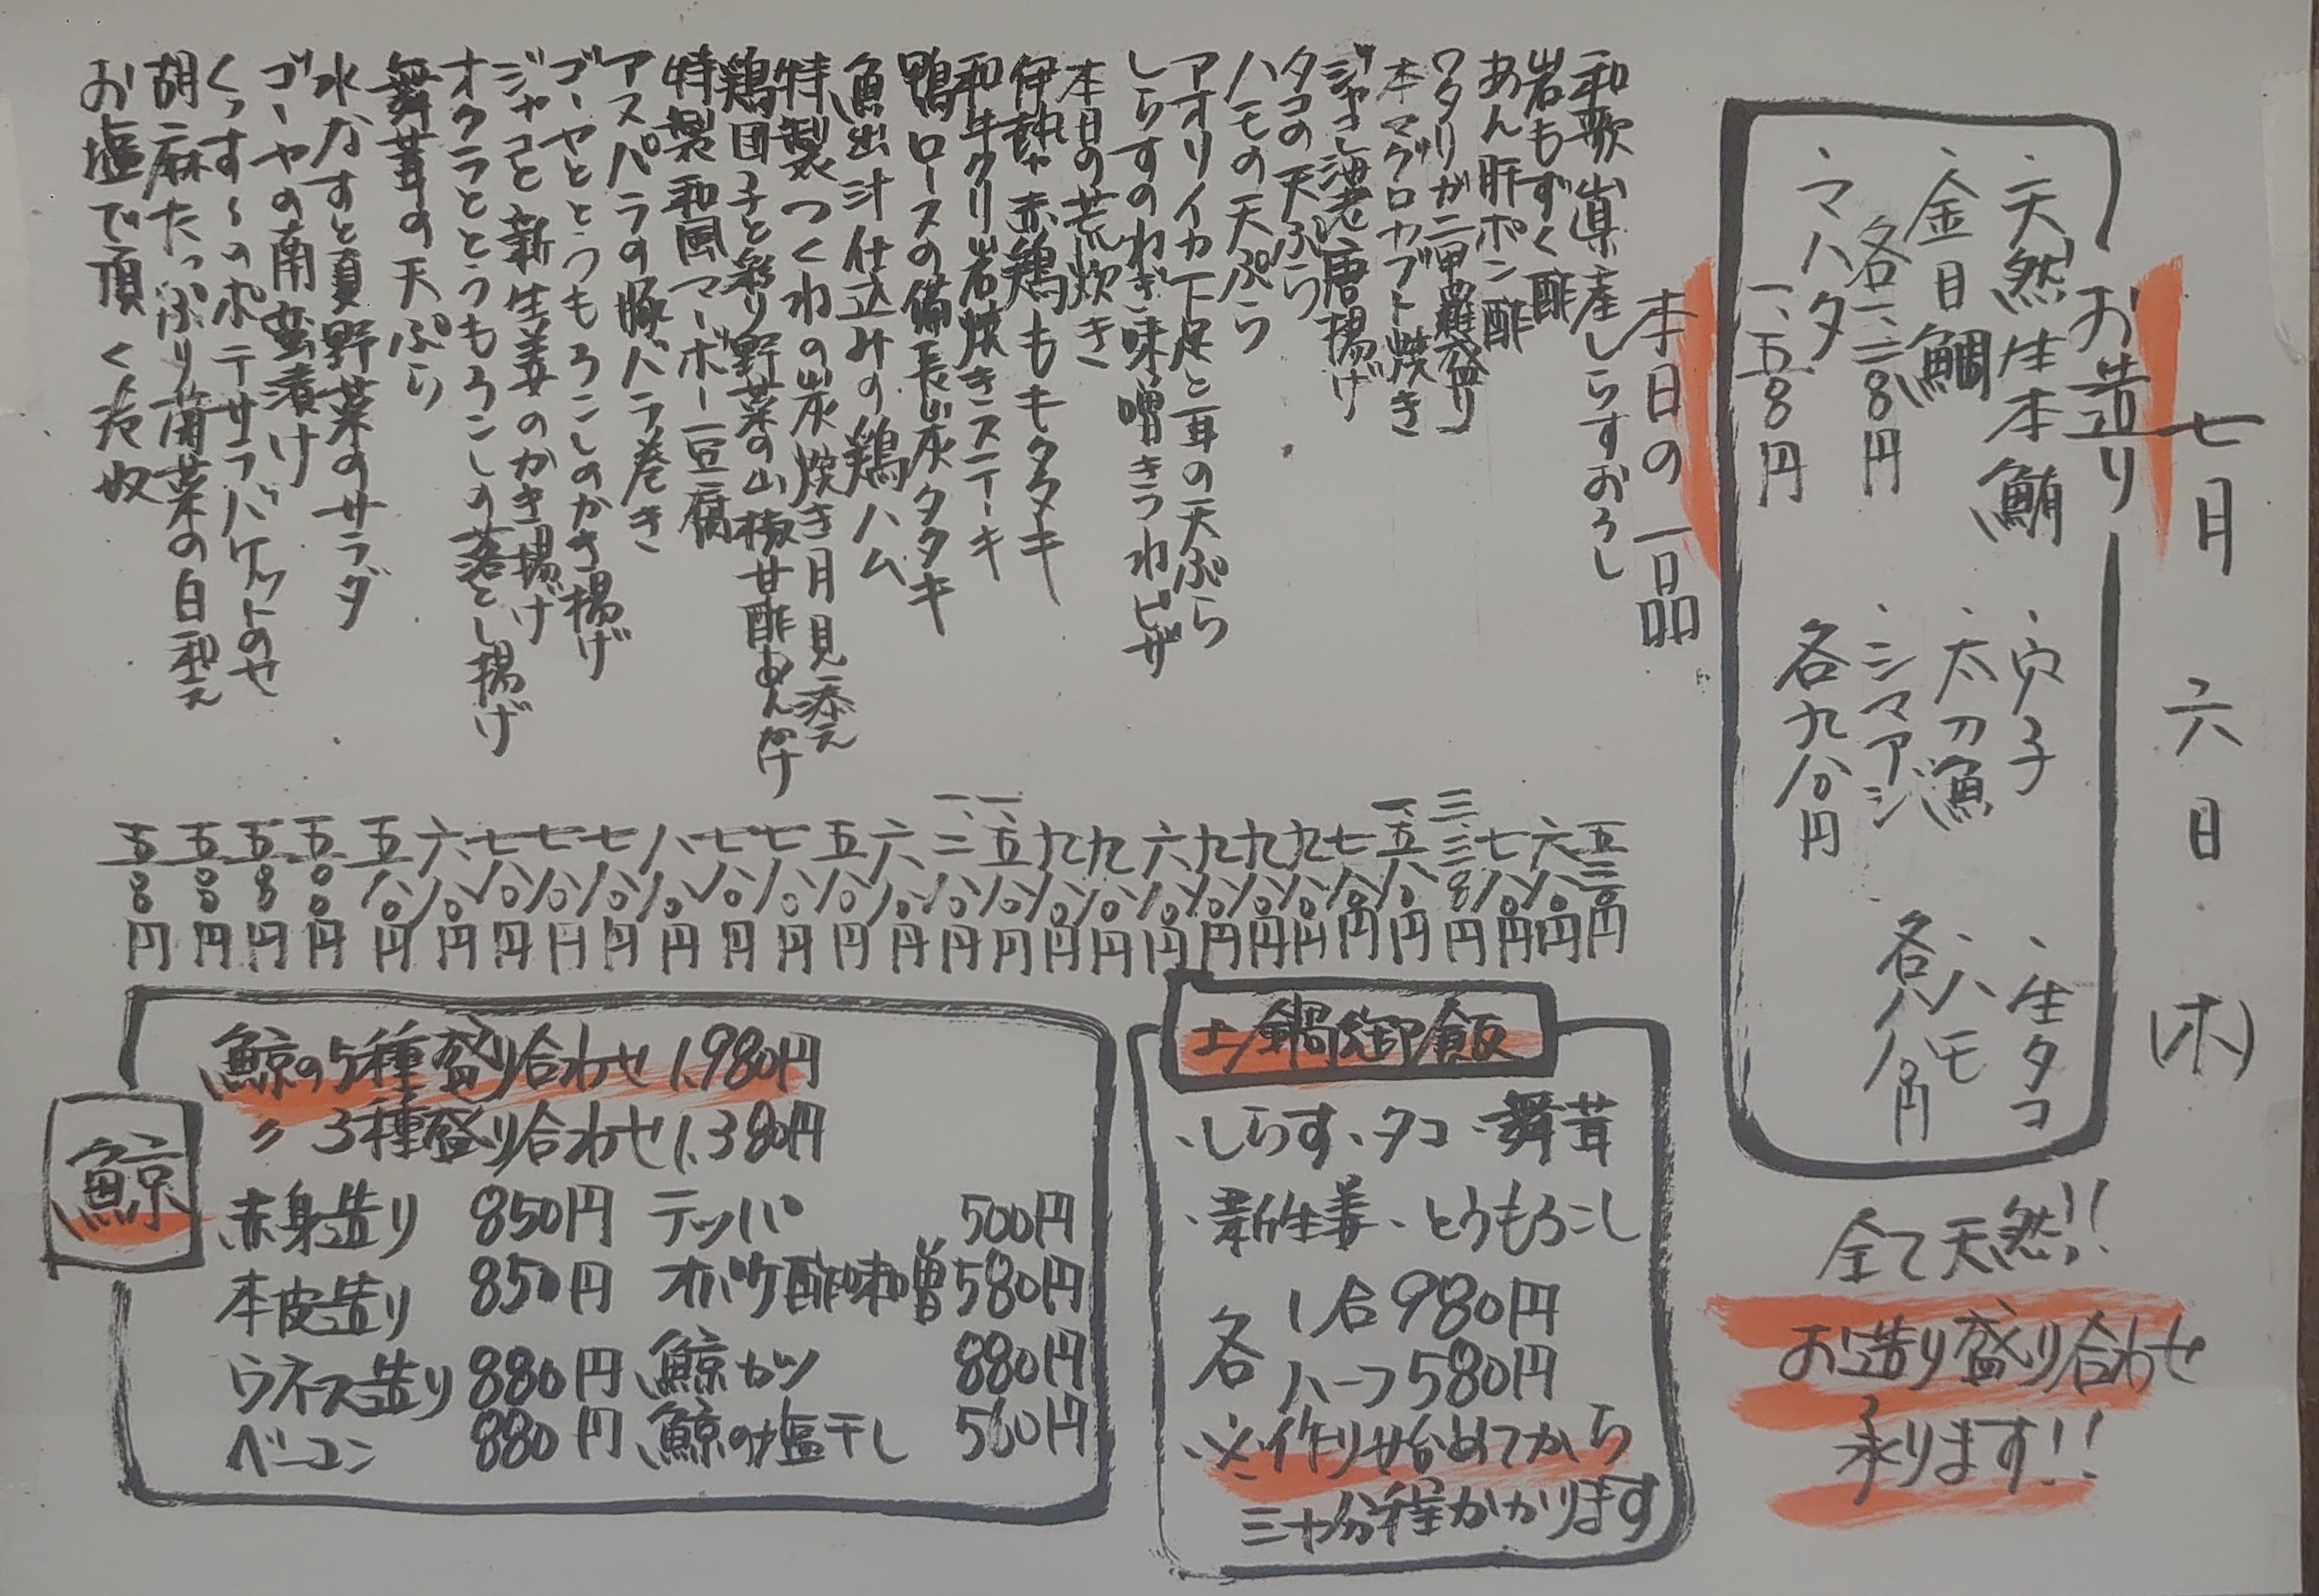 七月六日(木)
お造り
、天然生本鮪
、金目鯛
各一、二八〇円
、マハタ
一、五八〇円
、穴子
、太刀魚
、シマアジ
各九八〇円
、生タコ
、ハモ
各八八〇円
全て天然!!
お造り盛り合わせ
承ります!!
本日の一品
和歌山県産しらすおろし 五三〇円
岩もずく酢 六八〇円
あん肝ポン酢 七八〇円
ワタリガニ甲羅盛り
本マグロカブト焼き 一、五八〇円
ジャコ海老唐揚げ 七八〇円
タコの天ぷら 九八〇円
ハモの天ぷら 九八〇円
アオリイカ下足と耳の天ぷら 九八〇円
しらすのねぎ味噌きつねピザ 六八〇円
本日の荒炊き 九八〇円
伊勢赤鶏ももキタタキ 九八〇円
和牛クリ岩炊きステーキ 一、五八〇円
鴨ロースの備長炭タタキ 一、二八〇円
魚出汁仕込みの鶏ハム 六八〇円
特製つくねの炭焼き月見添え 五八〇円
鶏団子と彩り野菜の山椒甘酢あんかけ 七八〇円
特製和風マーボー豆腐 七八〇円
アスパラの豚バラ巻き 八八〇円
ゴーヤととうもろこしのかき揚げ 七八〇円
ジャコと新生姜のかき揚げ 七八〇円
オクラととうもろこしの落とし揚げ 七八〇円
舞茸の天ぷら 六八〇円
水なすと夏野菜のサラダ 五八〇円
ゴーヤの南蛮漬け 五〇〇円
くっす〜のポテサラバケットのせ 五八〇円
胡麻たっぷり蒲菜の白和え 五八〇円
お塩で頂く冷奴 五八〇円
土鍋御飯
、しらす、タコ、舞茸
、新生姜、とうもろこし
各 1合980円
ハーフ580円
※作り始めてから
三十分程かかります
鯨
鯨の5種盛り合わせ 1,980円
〃 3種盛り合わせ 1,380円
赤身造り 850円 テッパ 500円
本皮造り 850円 オバケ酢味噌 580円
ウネス造り 880円 鯨カツ 880円
ベーコン 880円 鯨の塩干し 560円